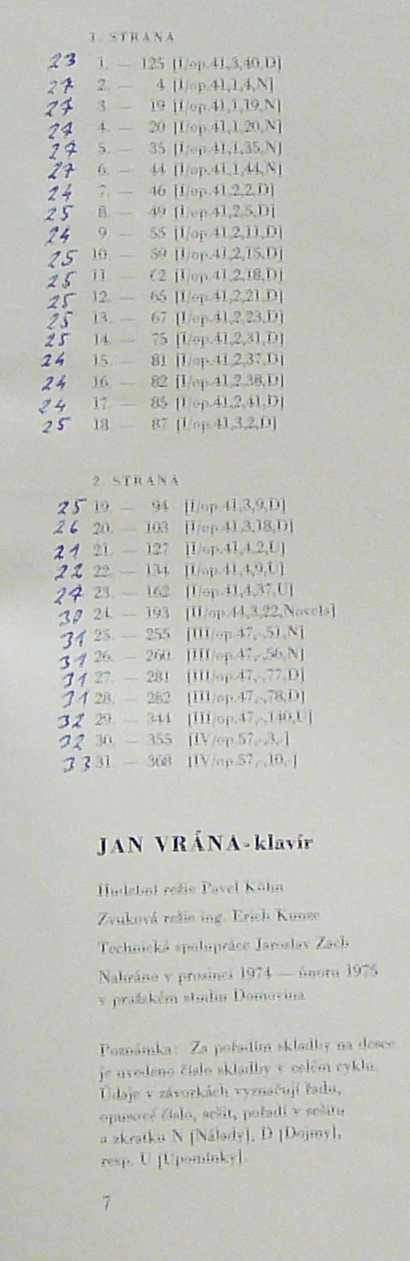 1. STRANA
23 1. — 125 [I/op.41,3,40,D]
27 2. — 4 [I/op.41,1,4,N]
27 3. — 19 [I/op.41,1,19,N]
27 4. — 20 [I/op.41,1,20,N]
27 5. — 35 [I/op.41,1,35,N]
27 6. — 44 [I/op.41,1,44,N]
24 7. — 46 [I/op.41,2,2,D]
25 8. — 49 [I/op.41,2,5,D]
24 9. — 55 [I/op.41,2,11,D]
25 10. — 59 [I/op.41,2,15,D]
25 11. — 62 [I/op.41,2,18,D]
25 12. — 65 [I/op.41,2,21,D]
25 13. — 67 [I/op.41,2,23,D]
25 14. — 75 [I/op.41,2,31,D]
24 15. — 81 [I/op.41,2,37,D]
24 16. — 82 [I/op.41,2,38,D]
24 17. — 85 [I/op.41,2,41,D]
25 18. — 87 [I/op.41,3,2,D]
2. STRANA
25 19. — 94 [I/op.41,3,9,D]
26 20. — 103 [I/op.41,3,18,D]
21 21. — 127 [I/op.41,4,2,U]
22 22. — 134 [I/op.41,4,9,U]
27 23. — 162 [I/op.41,4,37,U]
30 24. — 193 [II/op.44,3,22,Novela]
31 25. — 255 [III/op.47,-,51,N]
31 26. — 260 [III/op.47,-,56,N]
31 27. — 281 [III/op.47,-,77,D]
31 28. — 282 [III/op.47,-,78,D]
32 29. — 344 [III/op.47,-,140,U]
32 30. — 355 [IV/op.57,-,3,-]
33 31. — 368 [IV/op.57,-,10,-]
JAN VRÁNA - klavír
Hudební režie Pavel Kühn
Zvuková režie ing. Erich Kunze
Technická spolupráce Jaroslav Zach
Nahráno v prosinci 1974 — únoru 1975
v pražském studiu Domovina
Poznámka: Za pořadím skladby na desce
je uvedeno číslo skladby v celém cyklu.
Údaje v závorkách vyznačují řadu,
opusové číslo, sešit, pořadí v sešitu
a zkratku N [Nálady], D [Dojmy],
resp. U [Upomínky].
7